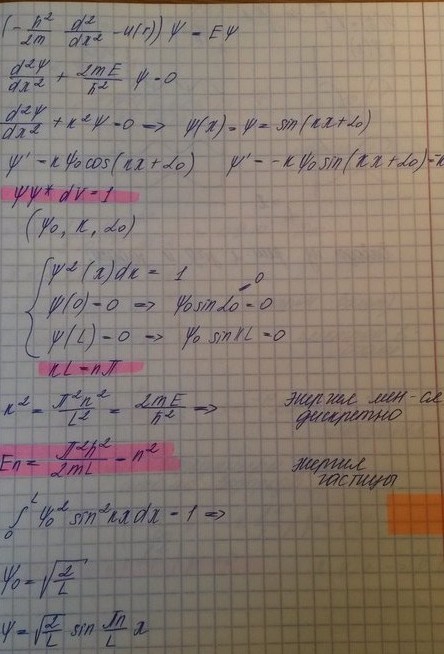 (-ħ²/2m d²/dx² - u(r)) Ψ = EΨ
d²Ψ/dx² + 2mE/ħ² Ψ = 0
d²Ψ/dx² + k²Ψ = 0 => Ψ(x) = Ψ = sin(kx+α₀)
Ψ' = kΨ₀cos(kx+α₀) Ψ' = -kΨ₀sin(kx+α₀) =
ΨΨ* dv = 1
(Ψ₀, k, α₀)
Ψ²(x)dx = 1
Ψ(0) = 0 => Ψ₀sinα₀ = 0 0
Ψ(L) = 0 => Ψ₀ sin kL = 0
kL = nπ
k² = π²n²/L² = 2mE/ħ² => энергия мен-ся
дискретно
En = π²ħ²/2mL - n² энергия
частицы
∫₀ᴸ Ψ₀² sin²kx dx = 1 =>
Ψ₀ = √(2/L)
Ψ = √(2/L) sin πn/L x